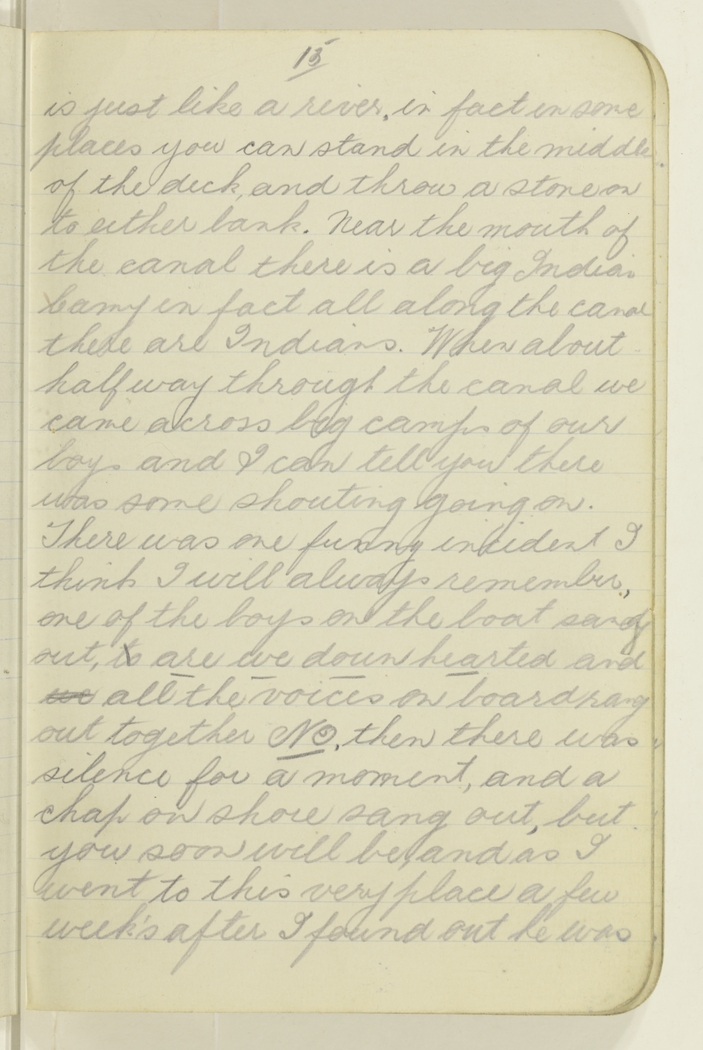 15
is just like a river, in fact in some
places you can stand in the middle
of the deck, and throw a stone on
to either bank. Near the mouth of
the canal there is a big Indian
Camp in fact all along the canal
there are Indians. When about
half way through the canal we
came across big camps of our
boys and I can tell you there
was some shouting going on.
There was one funny incident I
think I will always remember,
one of the boys on the boat sang
out, to are we down hearted and
all the voices on board rang
out together No, then there was
silence for a moment, and a
chap on shore sang out, but
you soon will be, and as I
went to this very place a few
week's after I found out he was